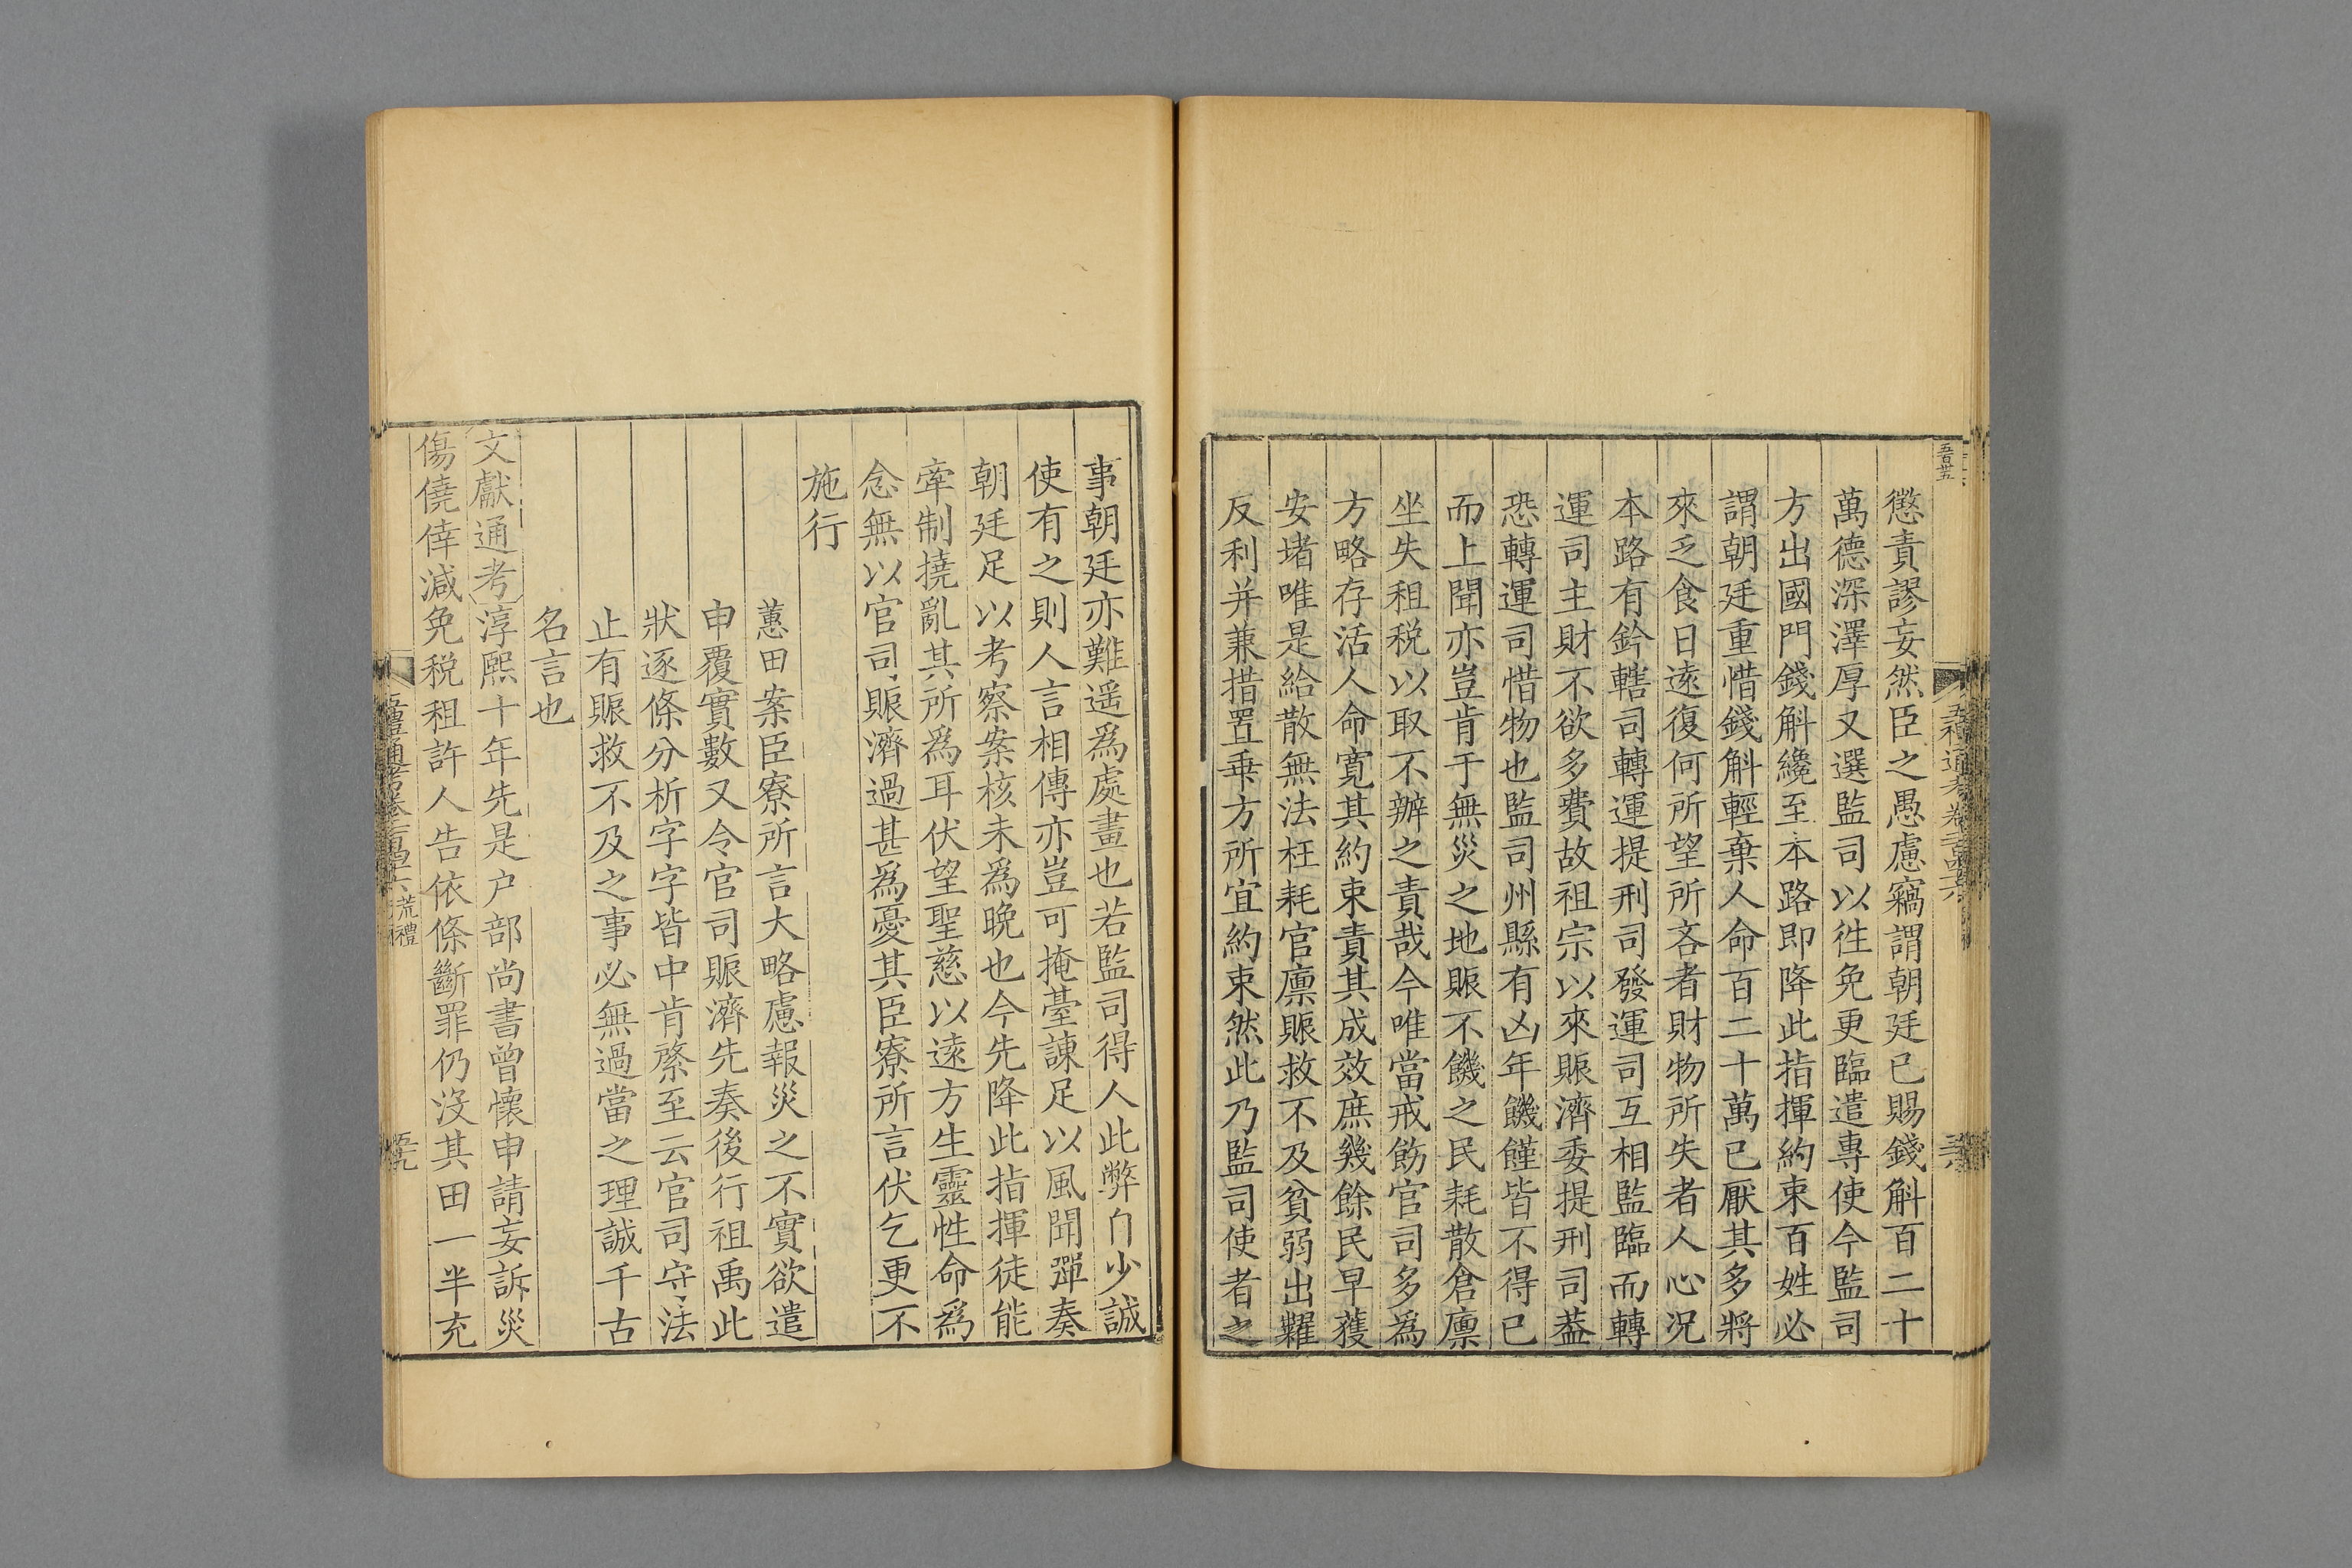 懲責謬妄然臣之愚慮竊謂朝廷已賜錢斛百二十
萬德深澤厚又選監司以徃免更臨遣專使今監司
方出國門錢斛纔至本路即降此指揮約束百姓必
謂朝廷重惜錢斛輕棄人命百二十萬已厭其多將
來乏食日逺復何所望所吝者財物所失者人心况
本路有鈐轄司轉運提刑司發運司互相監臨而轉
運司主財不欲多費故祖宗以來賑濟委提刑司葢
恐轉運司惜物也監司州縣有凶年饑饉皆不得已
而上聞亦豈肯于無災之地賑不饑之民耗散倉廪
坐失租税以取不辦之責哉今唯當戒飭官司多為
方略存活人命寛其約束責其成效庶幾餘民早獲
安堵唯是給散無法枉耗官廪賑救不及貧弱出糶
反利并兼措置乖方所宜約束然此乃監司使者之
事朝廷亦難遥爲處畫也若監司得人此弊自少誠
使有之則人言相傳亦豈可掩䑓諌足以風聞彈奏
朝廷足以考察案核未爲晩也今先降此指揮徒能
牽制撓亂其所爲耳伏望聖慈以逺方生靈性命爲
念無以官司賑濟過甚爲憂其臣寮所言伏乞更不
施行
蕙田案臣寮所言大略慮報災之不實欲遣
申覆實數又令官司賑濟先奏後行祖禹此
狀逐條分析字字皆中肯綮至云官司守法
止有賑救不及之事必無過當之理誠千古
名言也
文獻通考淳熙十年先是户部尚書曾懐申請妄訴災
傷僥倖減免税租許人告依條斷罪仍没其田一半充